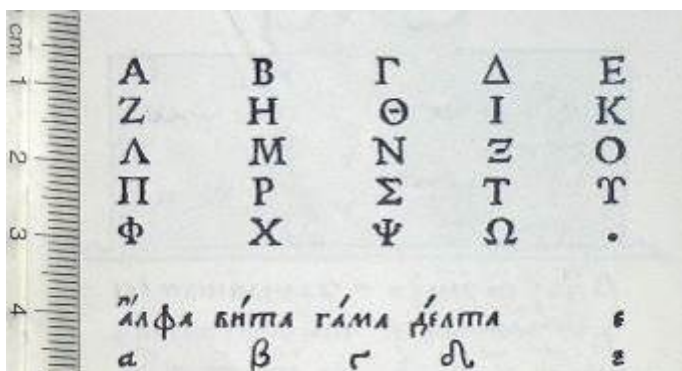 cm 1 2 3 4
Α Β Γ Δ Ε
Ζ Η Θ Ι Κ
Λ Μ Ν Ξ Ο
Π Ρ Σ Τ ϒ
Φ Χ Ψ Ω .
ἄλφα βήτα γάμα δέλτα ε
α β